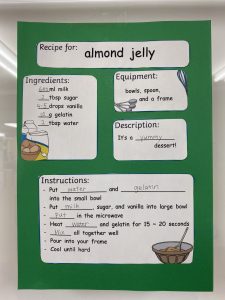 Recipe for:
almond jelly
Ingredients:
ml milk
tbsp sugar
drops vanilla
g gelatin
2 tbsp water
Equipment:
bowls, spoon,
and a frame
Description:
It's a yummy
dessert!
Instructions:
- Put water and gelatin
into the small bowl
- Put milk, sugar, and vanilla into large bowl
- Put in the microwave
- Heat water and gelatin for 15 ~ 20 seconds
- Mix all together well
- Pour into your frame
- Cool until hard